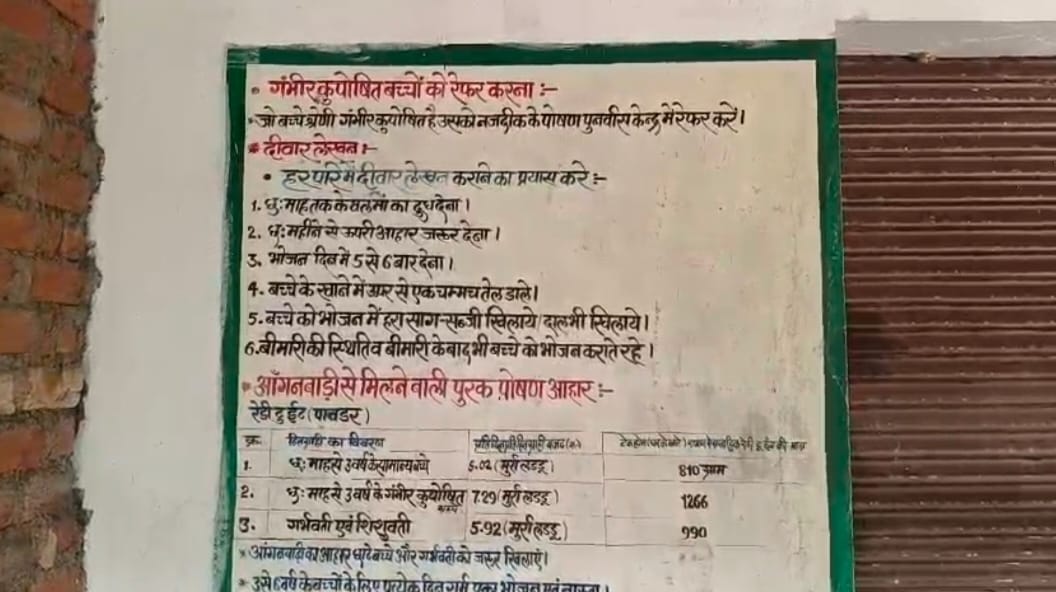 • गंभीर कुपोषित बच्चों को रेफर करना :-
• जो बच्चे श्रेणी गंभीर कुपोषित है उसको नजदीक के पोषण पुनर्वास केन्द्र में रेफर करें।
* दीवार लेखन :-
• हर पारे में दीवार लेखन कराने का प्रयास करे :-
1. छ: माह तक केवल माँ का दुध देना।
2. छ: महीने से ऊपरी आहार जरूर देना।
3. भोजन दिन में 5 से 6 बार देना।
4. बच्चे के खाने में ऊपर से एक चम्मच तेल डाले।
5. बच्चे को भोजन में हरा साग-सब्जी खिलाये दाल भी खिलाये।
6. बीमारी की स्थिति व बीमारी के बाद भी बच्चे को भोजन कराते रहे।
• आँगनबाड़ी से मिलने वाली पुरक पोषण आहार :-
रेडी टु ईट (पावडर)
क्र. हितग्राही का विवरण प्रतिदिन प्रति हितग्राही
1. छ: माह से 3 वर्ष के सामान्य बच्चे 5.02 (मुर्रा लडडू) 810 ग्राम
2. छ: माह से 3 वर्ष के गंभीर कुपोषित बच्चे 7.29 (मुर्रा लडडू) 1266
3. गर्भवती एवं शिशुवती 5.92 (मुर्रा लडडू) 990
* आंगनबाड़ी का आहार छोटे बच्चे और गर्भवती को जरूर खिलाएं।
* 3 से 6 वर्ष के बच्चों के लिए प्रत्येक दिन गर्म पका भोजन एवं नाश्ता।